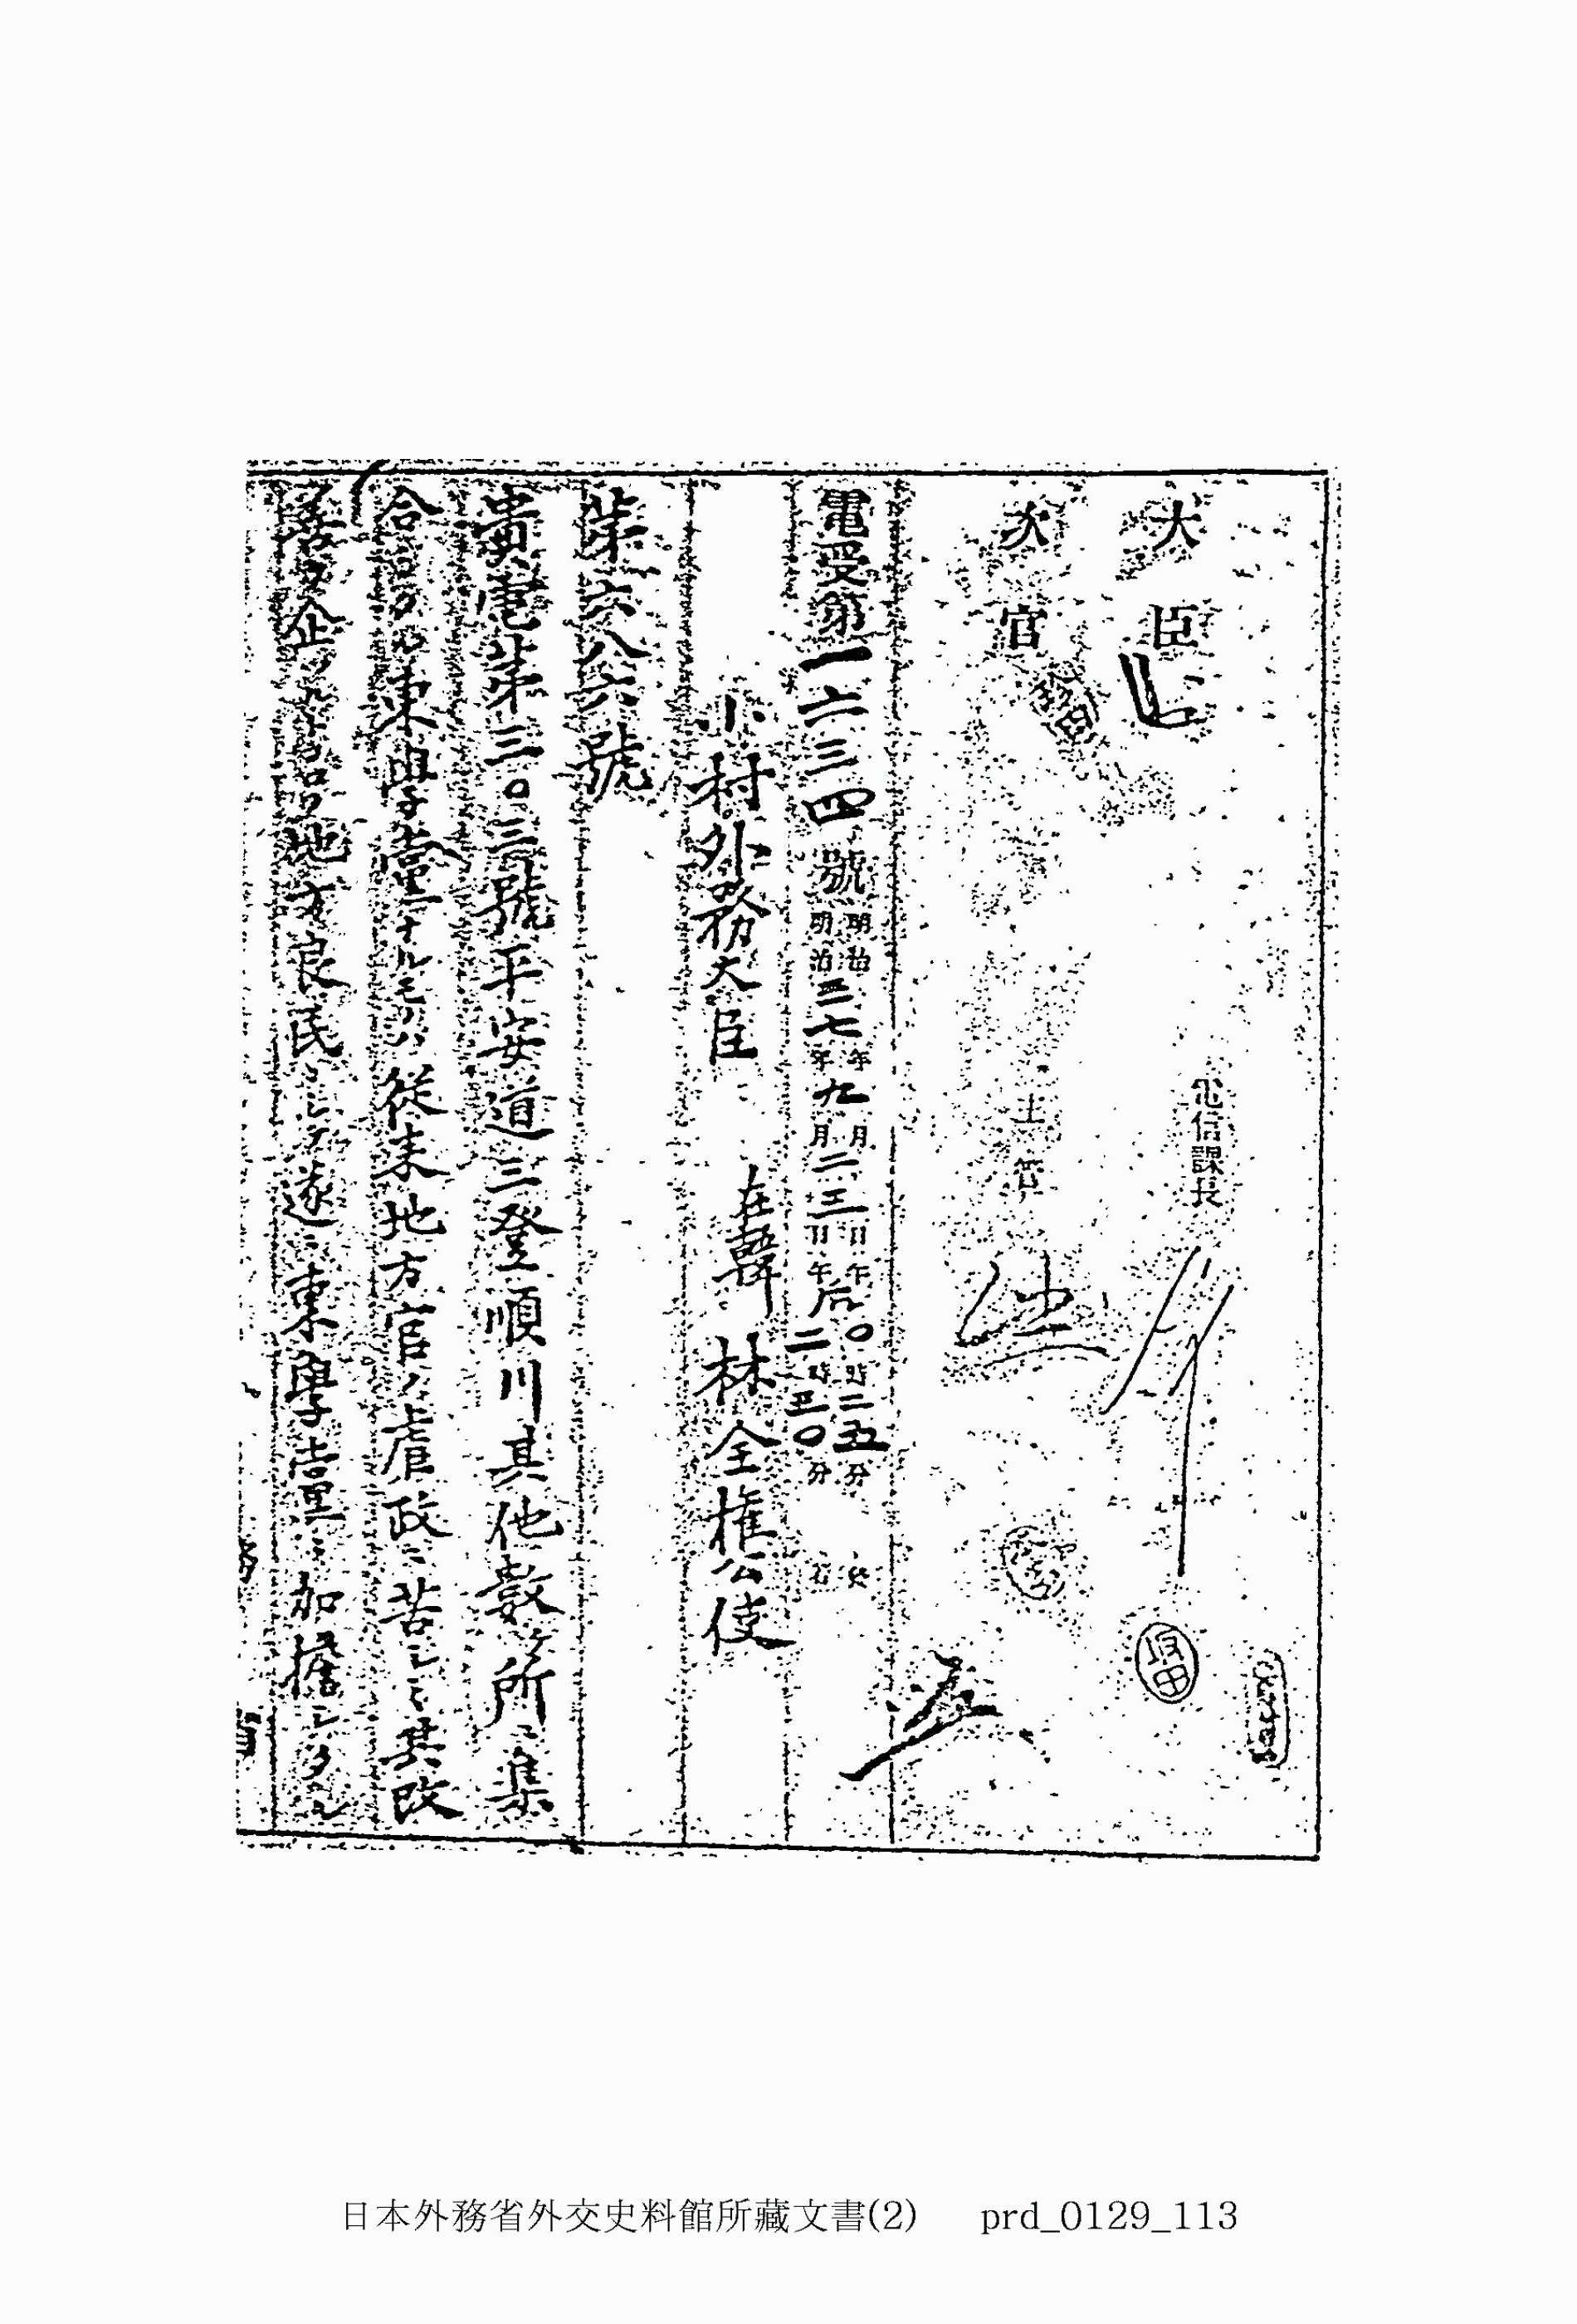 大臣
電信課長
次官
主管
電受第一六三四號 明治三七年九月二三日午后〇時二五分 發
明治 年 月 日午 二時三〇分 着
小村外務大臣 在韓 林全權公使
第六八六號
貴電第三〇三號平安道三登順川其他數ヶ所ニ集
合セル東學黨ナルモノハ從來地方官ノ虐政ニ苦シミ其改
良ヲ企 地方良民ニシテ東學黨ニ加擔シタル
日本外務省外交史料館所藏文書(2) prd_0129_113